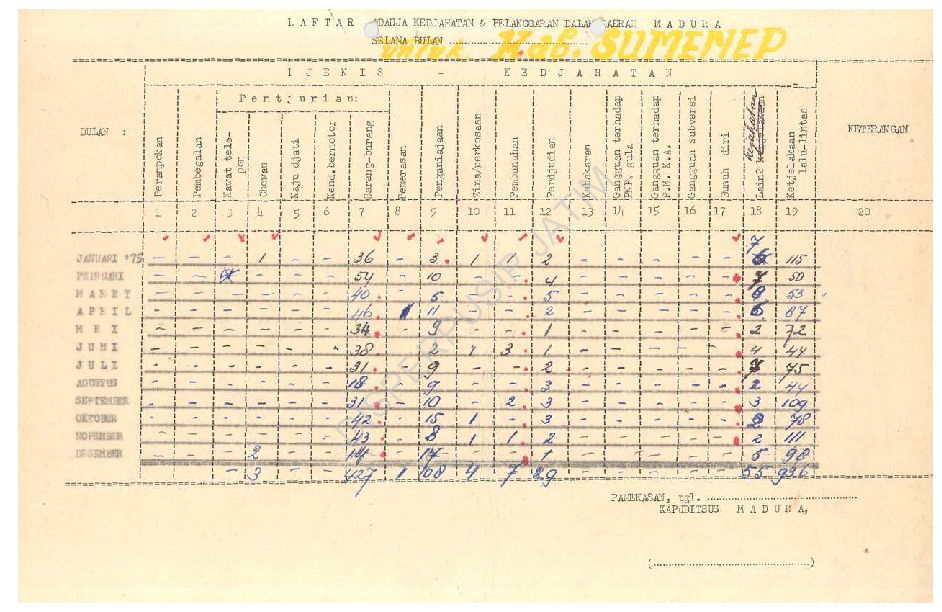 DAFTAR ADANJA KEDJAHATAN & PELANGGARAN DALAM DAERAH M A D U R A
SELAMA BULAN ..............................
untuk Kab. SUMENEP
DJENIS - K E D J A H A T A N
BULAN :
Perampokan
Pembegalan
Pentjurian:
Kawat tele-
pon
Chewan
Kaju djati
Kend.bermotor
Barang-barang
Pemerasan
Penganiajaan
Zina/perkosaan
Pembunuhan
Perdjudian
Kebakaran
Gangguan terhadap
Gangguan terhadap
P.N.K.A.
Gangguan subversi
Bunuh diri
kejahatan
Lain2
Ketjelakaan
lalu-lintas
KETERANGAN
1 2 3 4 5 6 7 8 9 10 11 12 13 14 15 16 17 18 19 20
JANUARI '75 - - - 1 - - 36 - 3 1 1 2 - - - - - 7 115
PEBRUARI - - - - - 54 - 10 - - 4 - - - - - 7 50
M A R E T - - - - - - 40 - 5 - - 5 - - - - - 53
A P R I L - - - - - - 46 1 11 - - 2 - - - - - 87
M E I - - - - - - 34 - 9 - - 1 - - - - - 2 72
J U N I - - - - - - 38 - 2 1 3 1 - - - - - 4 44
J U L I - - - - - - 31 - 9 - - 2 - - - - - 7 75
AGUSTUS - - - - - - 18 - 9 - - 3 - - - - - 2 44
SEPTEMBER - - - - - - 31 - 10 - 2 3 - - - - - 3 109
OKTOBER - - - - - - 42 - 15 1 - 3 - - - - - 78
NOPEMBER - - - - - - 43 - 8 1 1 2 - - - - - 2 111
DESEMBER - - - 2 - - 14 - 17 - - 1 - - - - - 5 98
- 3 - - 427 1 108 4 7 29 - - - - - 55 936
PAMEKASAN, tgl. ..............................
M A D U R A,
(..............................)
DISPERPUSIP JATIM